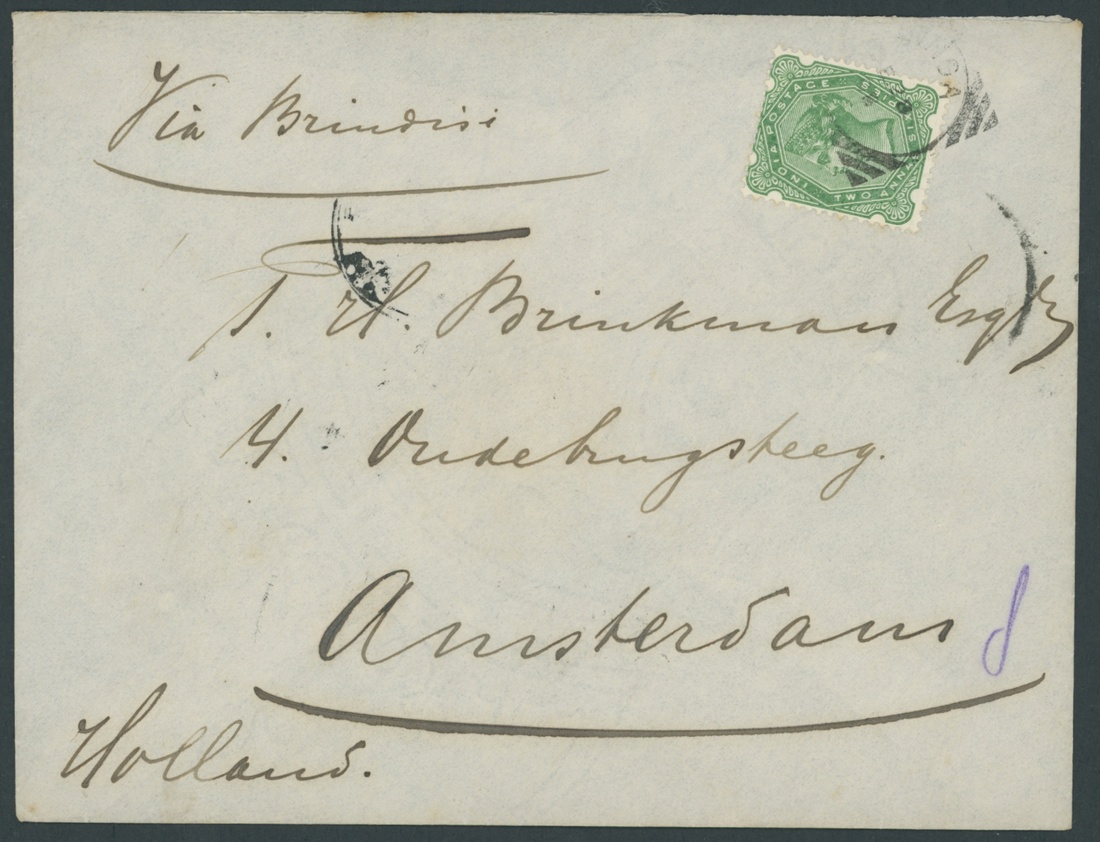 Via Brindisi
INDIA POSTAGE
TWO ANNAS SIX PIES
T. H. Brinkman Esqr
4. Oudebrugsteeg.
Amsterdam
Holland.